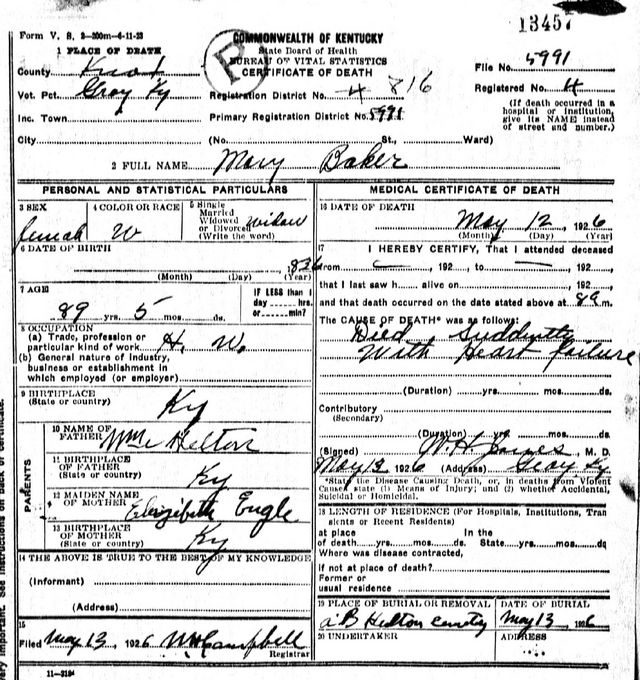 13457
Form V. S. 2—200m—4-11-23
COMMONWEALTH OF KENTUCKY
State Board of Health
BUREAU OF VITAL STATISTICS
CERTIFICATE OF DEATH
R
1 PLACE OF DEATH
County Knox
Vot. Pct. Gray Ky
Inc. Town
City
File No. 5991
Registered No. 4
(If death occurred in a hospital or institution, give its NAME instead of street and number.)
Registration District No. 4 816
Primary Registration District No. 5991
(No. St., Ward)
2 FULL NAME Mary Baker
PERSONAL AND STATISTICAL PARTICULARS
3 SEX
Female
4 COLOR OR RACE
W
5 Single
Married
Widowed
or Divorced
(Write the word)
Widow
6 DATE OF BIRTH
, 1836
(Month) (Day) (Year)
7 AGE
89 yrs. 5 mos. ds.
IF LESS than 1
day hrs.
or min?
8 OCCUPATION
(a) Trade, profession or
particular kind of work H. W.
(b) General nature of Industry,
business or establishment in
which employed (or employer)
9 BIRTHPLACE
(State or country) Ky
PARENTS
10 NAME OF
FATHER Wm Helton
11 BIRTHPLACE
OF FATHER
(State or country) Ky
12 MAIDEN NAME
OF MOTHER Elizibeth Engle
13 BIRTHPLACE
OF MOTHER
(State or country) Ky
14 THE ABOVE IS TRUE TO THE BEST OF MY KNOWLEDGE
(Informant)
(Address)
15
Filed May 13, 1926 WH Campbell
Registrar
11-3184
MEDICAL CERTIFICATE OF DEATH
16 DATE OF DEATH
May 12, 1926
(Month) (Day) (Year)
17 I HEREBY CERTIFY, That I attended deceased
from , 192 , to , 192 ,
that I last saw h alive on , 192 ,
and that death occurred on the date stated above at 8 a m.
The CAUSE OF DEATH* was as follows:
Died Suddently
With Heart failure
(Duration) yrs. mos. ds.
Contributory
(Secondary)
(Duration) yrs. mos. ds.
(Signed) W. H. , M. D.
May 13 1926 (Address) Gray Ky
*State the Disease Causing Death, or, in deaths from Violent
Causes state (1) Means of Injury; and (2) whether Accidental,
Suicidal or Homicidal.
18 LENGTH OF RESIDENCE (For Hospitals, Institutions, Tran
sients or Recent Residents)
at place In the
of death yrs. mos. ds. State yrs. mos. ds
Where was disease contracted,
if not at place of death?
Former or
usual residence
19 PLACE OF BURIAL OR REMOVAL
B Helton
DATE OF BURIAL
May 13 1926
20 UNDERTAKER
ADDRESS
very important. See instructions on back of certificate.